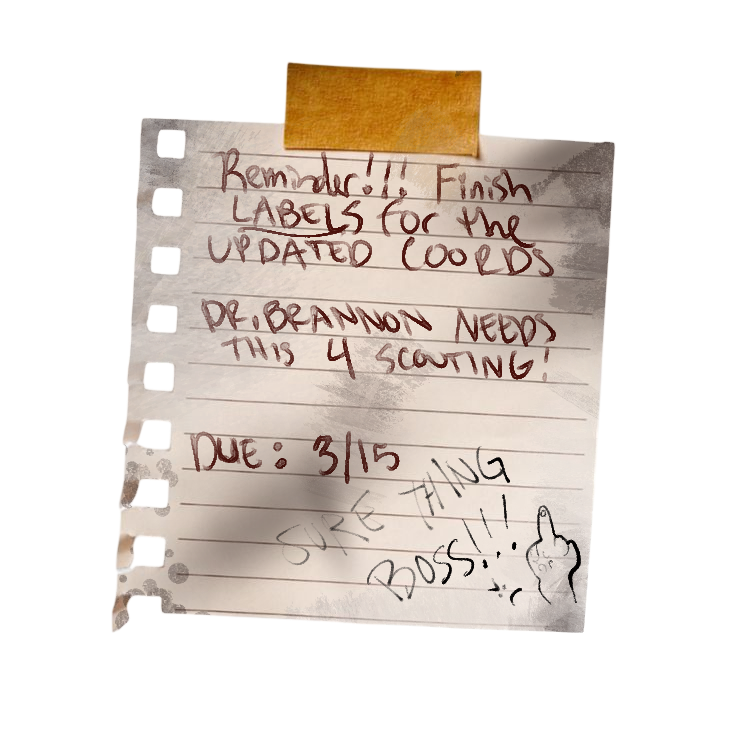 Reminder!!! Finish
LABELS for the
UPDATED COORDS
DR. BRANNON NEEDS
THIS 4 SCOUTING!
DUE: 3/15
SURE THING
BOSS!!!